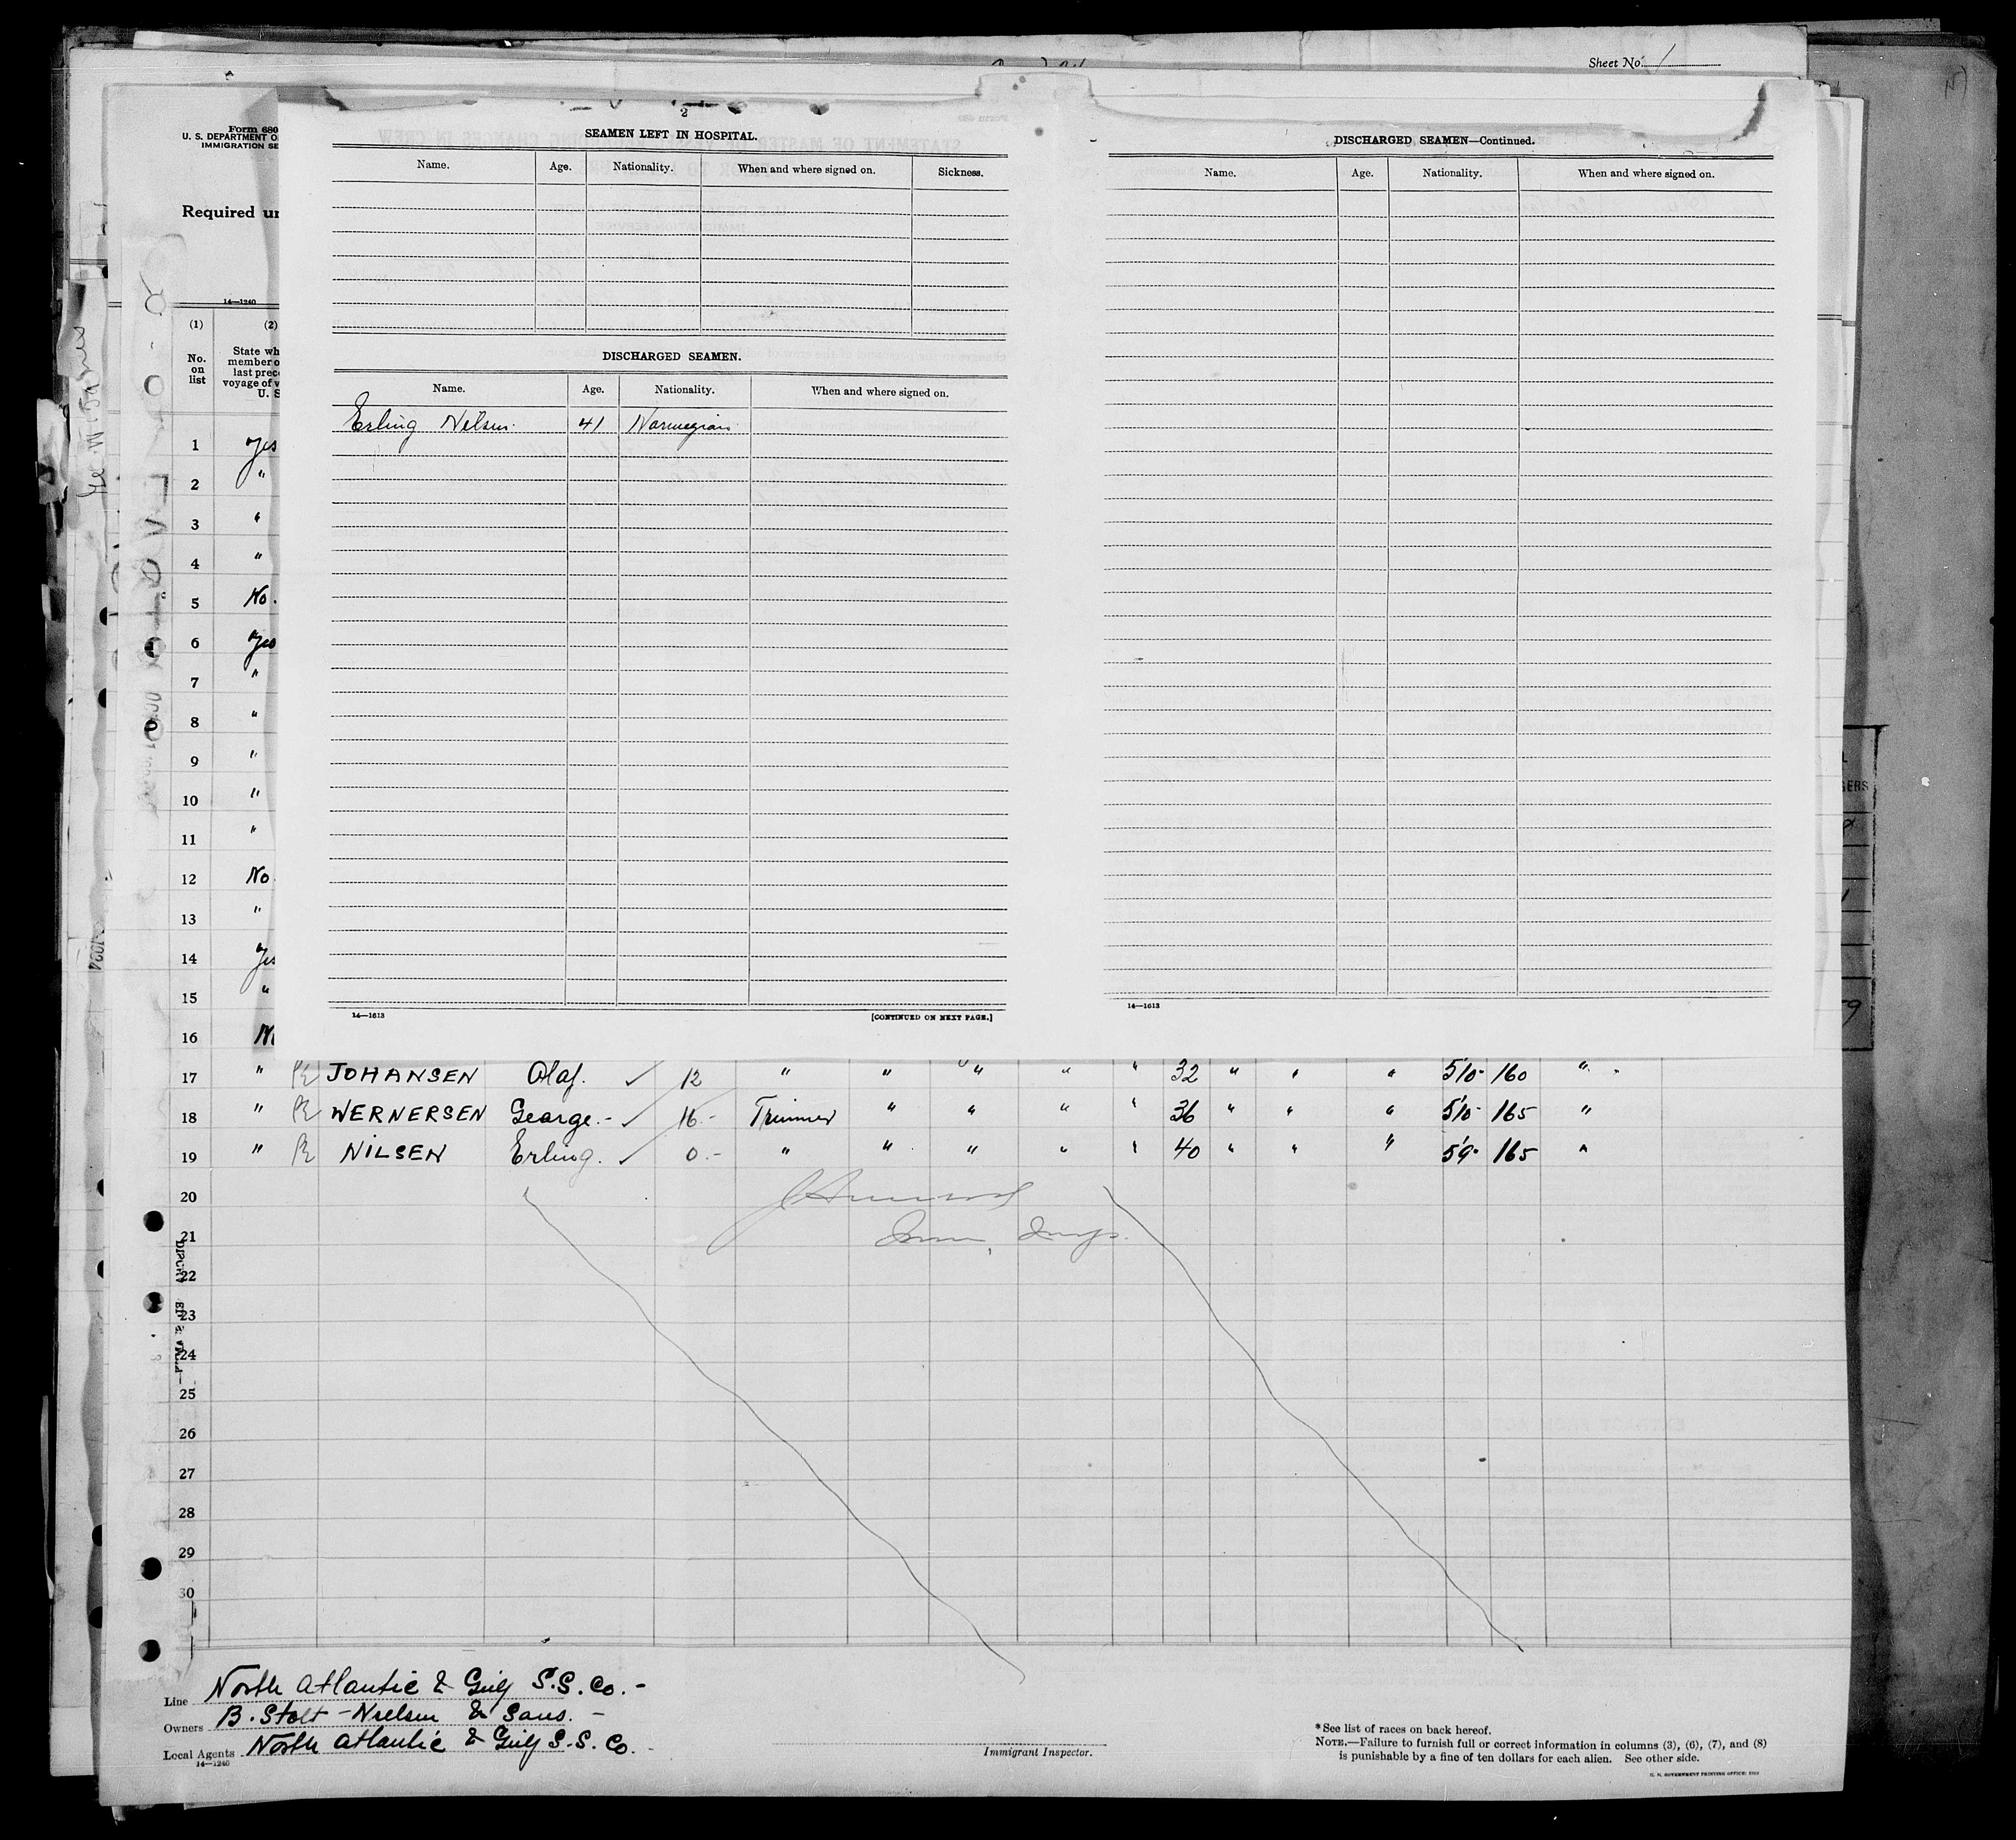 Sheet No. 1
Form 680
U. S. DEPARTMENT O
IMMIGRATION SE
Required un
14—1240
(1) (2)
No. on list
State wh
member o
last prece
voyage of v
U. S
2
SEAMEN LEFT IN HOSPITAL.
Name. Age. Nationality. When and where signed on. Sickness.
DISCHARGED SEAMEN.
Name. Age. Nationality. When and where signed on.
Erling Nelsen. 41 Norwegian
14—1613 [CONTINUED ON NEXT PAGE.]
DISCHARGED SEAMEN—Continued.
Name. Age. Nationality. When and where signed on.
14—1613
1 Yes
2 "
3 "
4 "
5 No.
6 Yes
7 "
8 "
9 "
10 "
11 "
12 No.
13 "
14 Yes
15 "
16 No
17 " JOHANSEN Olaf. ✓ 12 " " " " " 32 " " " 5'10" 160 "
18 " WERNERSEN George.- ✓ 16.- Trimmer " " " " 36 " " " 5'10" 165 "
19 " NILSEN Erling. ✓ 0.- " " " " " 40 " " " 5'9" 165 "
20
21
22
23
24
25
26
27
28
29
30
Line North Atlantic & Gulf S.S. Co.-
Owners B. Stolt-Nielsen & Sons.-
Local Agents North Atlantic & Gulf S.S. Co.
14—1240
Immigrant Inspector.
*See list of races on back hereof.
NOTE.—Failure to furnish full or correct information in columns (3), (6), (7), and (8)
is punishable by a fine of ten dollars for each alien. See other side.